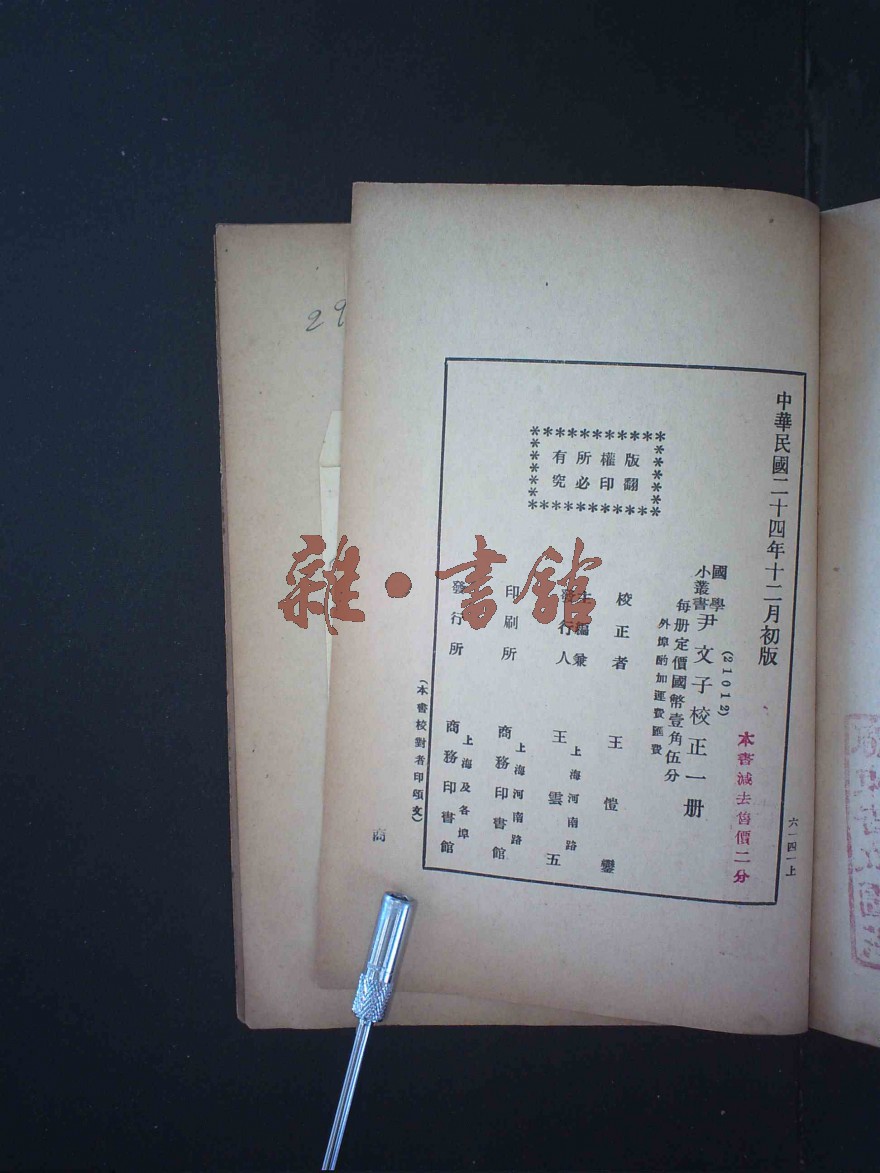 中華民國二十四年十二月初版
六一四一上
本書減去售價二分
國學
小叢書
尹文子校正一册
(21012)
每册定價國幣壹角伍分
外埠酌加運費匯費
版權所有
翻印必究
校正者 王愷鑾
主編兼
發行人
王雲五
上海河南路
印刷所
商務印書館
上海河南路
發行所
商務印書館
上海及各埠
(本書校對者印頌文)
商
29
雜·書館